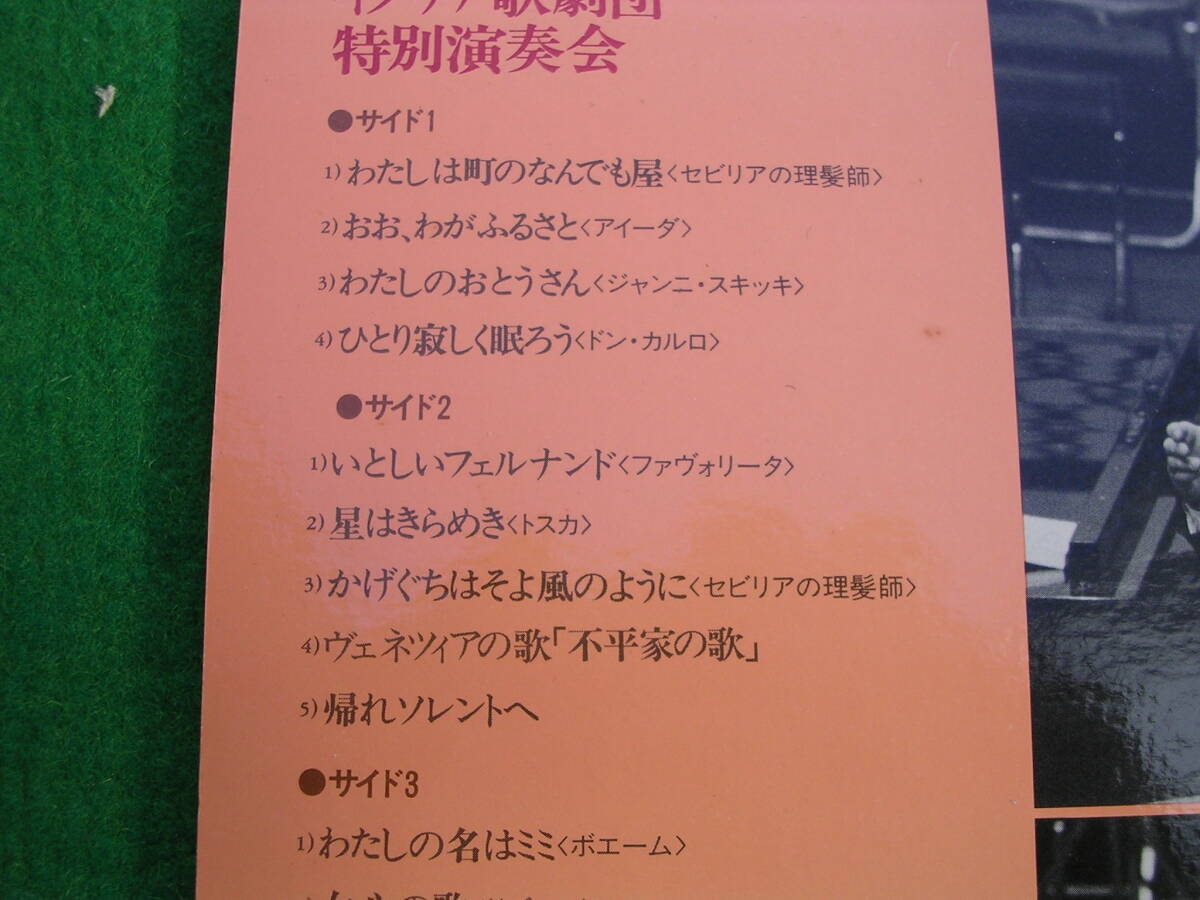 歌劇団
特別演奏会
●サイド1
1) わたしは町のなんでも屋〈セビリアの理髪師〉
2) おお、わがふるさと〈アイーダ〉
3) わたしのおとうさん〈ジャンニ・スキッキ〉
4) ひとり寂しく眠ろう〈ドン・カルロ〉
●サイド2
1) いとしいフェルナンド〈ファヴォリータ〉
2) 星はきらめき〈トスカ〉
3) かげぐちはそよ風のように〈セビリアの理髪師〉
4) ヴェネツィアの歌「不平家の歌」
5) 帰れソレントへ
●サイド3
1) わたしの名はミミ〈ボエーム〉